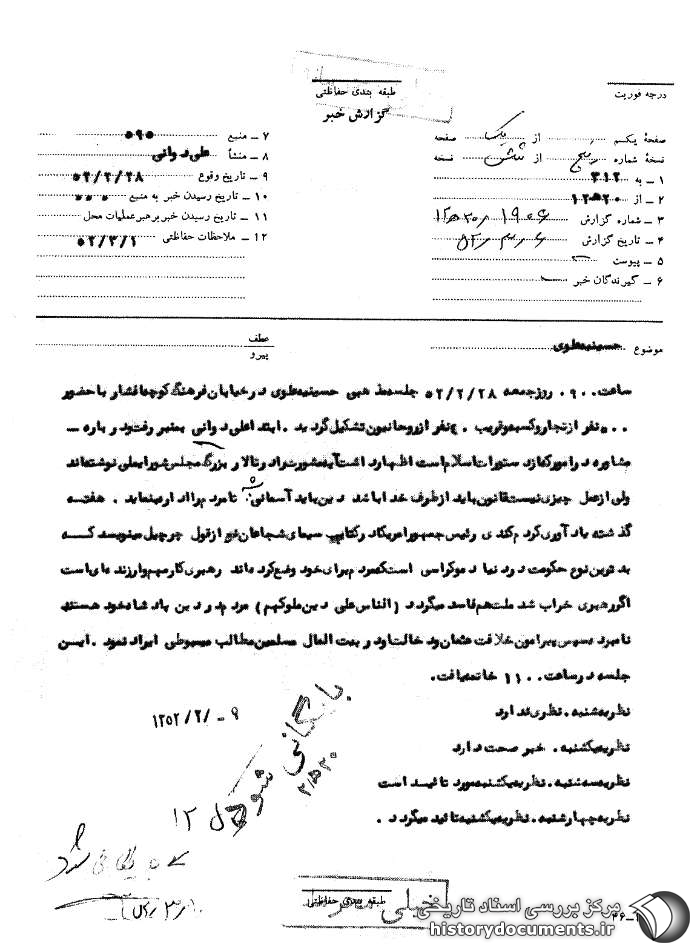 درجه فوریت
طبقه بندی حفاظتی
گزارش خبر
صفحهٔ یکم از یک صفحه
نسخهٔ شماره پنج از شش نسخه
۱ ـ به ۳۱۲
۲ ـ از ۲۰ ه ۱۲
۳ ـ شماره گزارش
۴ ـ تاریخ گزارش
۵ ـ پیوست
۶ ـ گیرندگان خبر
۷ ـ منبع ۵۹۰
۸ ـ منشأ علی دوانی
۹ ـ تاریخ وقوع ۵۲/۲/۲۸
۱۰ ـ تاریخ رسیدن خبر به منبع
۱۱ ـ تاریخ رسیدن خبر برهبر عملیات محل
۱۲ ـ ملاحظات حفاظتی ۵۲/۳/۱
موضوع حسینیه علوی
عطف
پیرو
ساعت ۰۹۰۰ روز جمعه ۵۲/۲/۲۸ جلسه مذهبی حسینیه علوی در خیابان فرهنگ کوچه افشار با حضور
نفر از تجار و کسبه و قریب ۴۰ نفر از روحانیون تشکیل گردید . ابتدا علی دوانی بمنبر رفت و درباره ـ
مشاوره در امور که از دستورات اسلام است اظهار داشت آیه مشورت را در تالار بزرگ مجلس شورایملی نوشته‌اند
ولی از عمل چیزی نیست قانون باید از طرف خدا باشد دین باید آسمانی تا مردم را اداره نماید . هفته
گذشته یادآوری کردم کندی رئیس جمهور امریکا در کتاب سیمای شجاعان نیز از قول چرچیل مینویسد که
بدترین نوع حکومت در دنیا دموکراسی است که مردم برای خود وضع کرده‌اند رهبری کار مهم و ارزنده‌ای است
اگر رهبری خراب شد ملت هم فاسد میگردد (الناس علی دین ملوکهم) مردم در دین پادشاه خود هستند
نامبرده سپس پیرامون خلافت عثمان و دخالت او در بیت المال مسلمین مطالب مبسوطی ایراد نمود . این
جلسه در ساعت ۱۱۰۰ خاتمه یافت.
نظریه شنبه . نظری ندارد
نظریه یکشنبه . خبر صحت دارد
نظریه سه شنبه . نظریه یکشنبه مورد تائید است
نظریه چهارشنبه . نظریه یکشنبه تائید میگردد .
۹ ـ /۲/ ۱۳۵۲
بایگانی شود
۲۰ ه ۱۲
طبقه بندی حفاظتی
خیلی محرمانه
مرکز بررسی اسناد تاریخی
historydocuments.ir